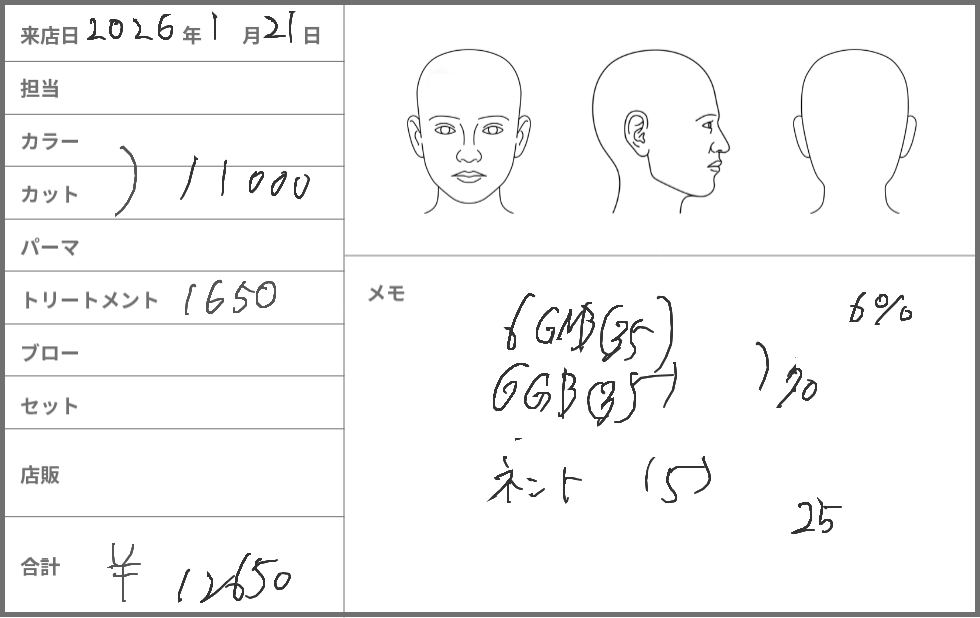 来店日 2026年1月21日
担当
カラー
カット ) 11000
パーマ
トリートメント 1650
ブロー
セット
店販
合計 ¥ 12650
メモ
6%
6GMB(35)
6GB(35) ) 70
ネント (5)
25